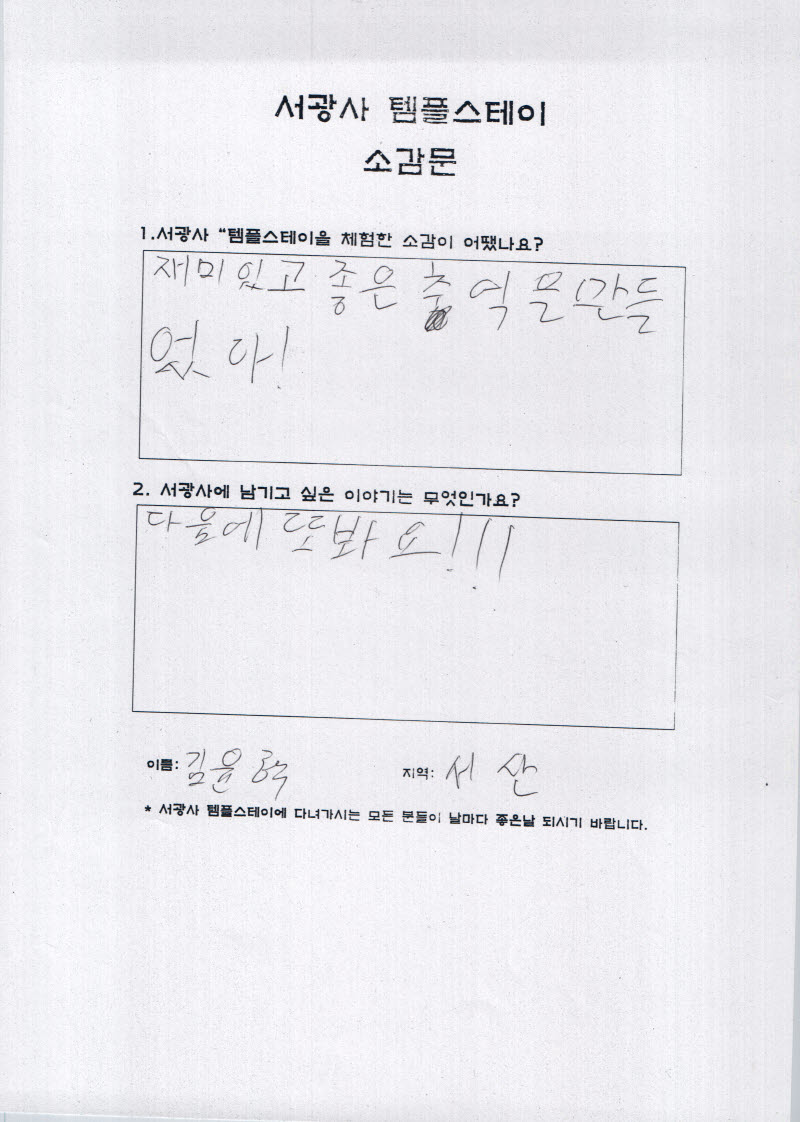 서광사 템플스테이
소감문
1.서광사 “템플스테이을 체험한 소감이 어땠나요?
재미있고 좋은 추억 믈 만들
었다!
2. 서광사에 남기고 싶은 이야기는 무엇인가요?
다음에 또봐요!!!
이름: 김윤혁 지역: 서산
* 서광사 템플스테이에 다녀가시는 모든 분들이 날마다 좋은날 되시기 바랍니다.